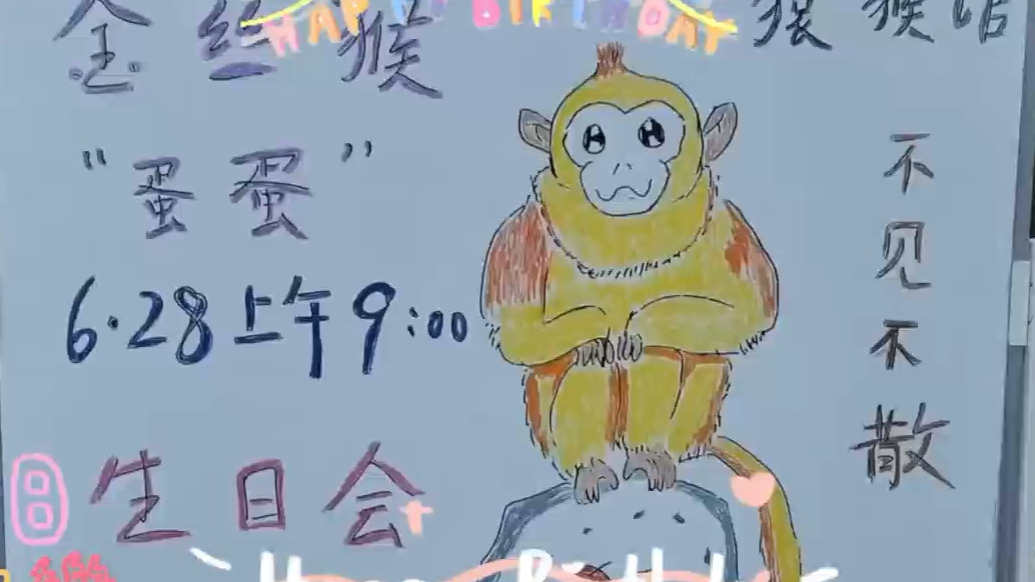 HAPPY BIRTHDAY
金丝猴
猴
"蛋蛋"
6·28上午9:00
生日会
不见不散